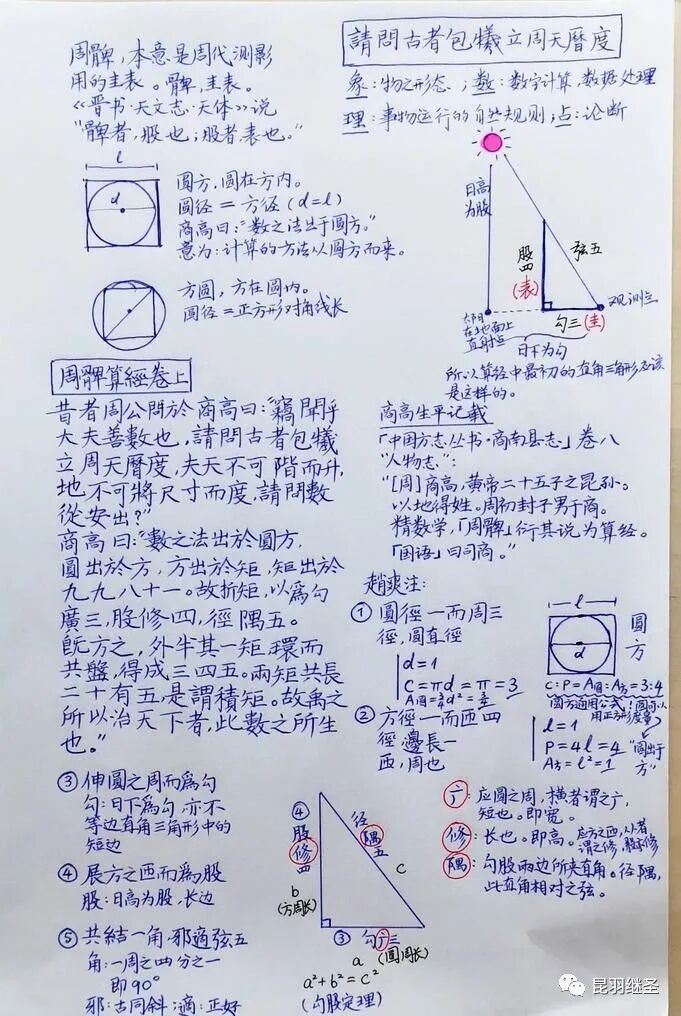 周髀,本意是周代测影
用的圭表。髀,圭表。
《晋书·天文志·天体》说
"髀者,股也;股者表也。"
l
d
圆方,圆在方内。
圆径=方径(d=l)
商高曰:"数之法出于圆方。"
意为:计算的方法以圆方而来。
方圆,方在圆内。
圆径=正方形对角线长
周髀算經卷上
昔者周公問於商高曰:"竊聞乎
大夫善數也,請問古者包犧
立周天曆度,夫天不可階而升,
地不可將尺寸而度,請問數
從安出?"
商高曰:"數之法出於圓方,
圓出於方,方出於矩,矩出於
九九八十一。故折矩,以爲勾
廣三,股修四,徑隅五。
既方之,外半其一矩,環而
共盤,得成三四五。兩矩共長
二十有五,是謂積矩。故禹之
所以治天下者,此數之所生
也。"
請問古者包犧立周天曆度
象:物之形态;数:数字计算,数据处理
理:事物运行的自然规则;点:论断
日高
为股
股
四
(表)
弦五
观测点
太阳
在地面上
直射点
勾三(圭)
日下为勾
所以算经中最初的直角三角形应该
是这样的。
商高生平记载
「中国方志丛书·商南县志」卷八
"人物志":
"[周]商高,黄帝二十五子之昆孙。
以地得姓。周初封子男于商。
精数学,「周髀」衍其说为算经。
「国语」曰司商。"
趙爽注:
① 圓徑一而周三
徑,圓直徑
d=1
C=πd=π=3
A圆=3/4d²=3/4
② 方徑一而匝四
徑,邊長一
匝,周也
l
d
圆
方
C:P=A圆:A方=3:4
圆方通用公式!圆可以
用正方形度量
l=1
P=4l=4
A方=l²=1
"圆出于
方"
③ 伸圓之周而爲勾
勾:日下爲勾,亦不
等边直角三角形中的
短边
④ 展方之匝而爲股
股:日高为股,长边
⑤ 共結一角,邪適弦五
角:一周之四分之一
即90°
邪:古同斜;適:正好
④
股
修
四
b
(方周长)
径
隅
五
c
③ 勾广三
a (圆周长)
a²+b²=c²
(勾股定理)
广:应圆之周,横者谓之广,
短也。即宽。
修:长也。即高。应方之匝,从者
谓之修,股亦修
隅:勾股两边所夹直角。径隅,
此直角相对之弦。
昆羽继圣